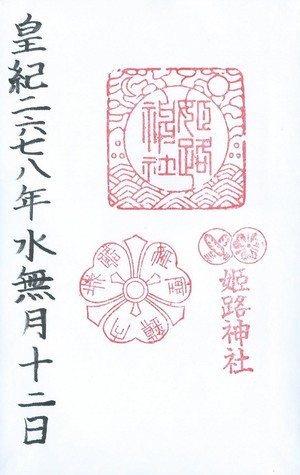 姫路神社
姫路神社
皇紀二六七八年水無月十二日